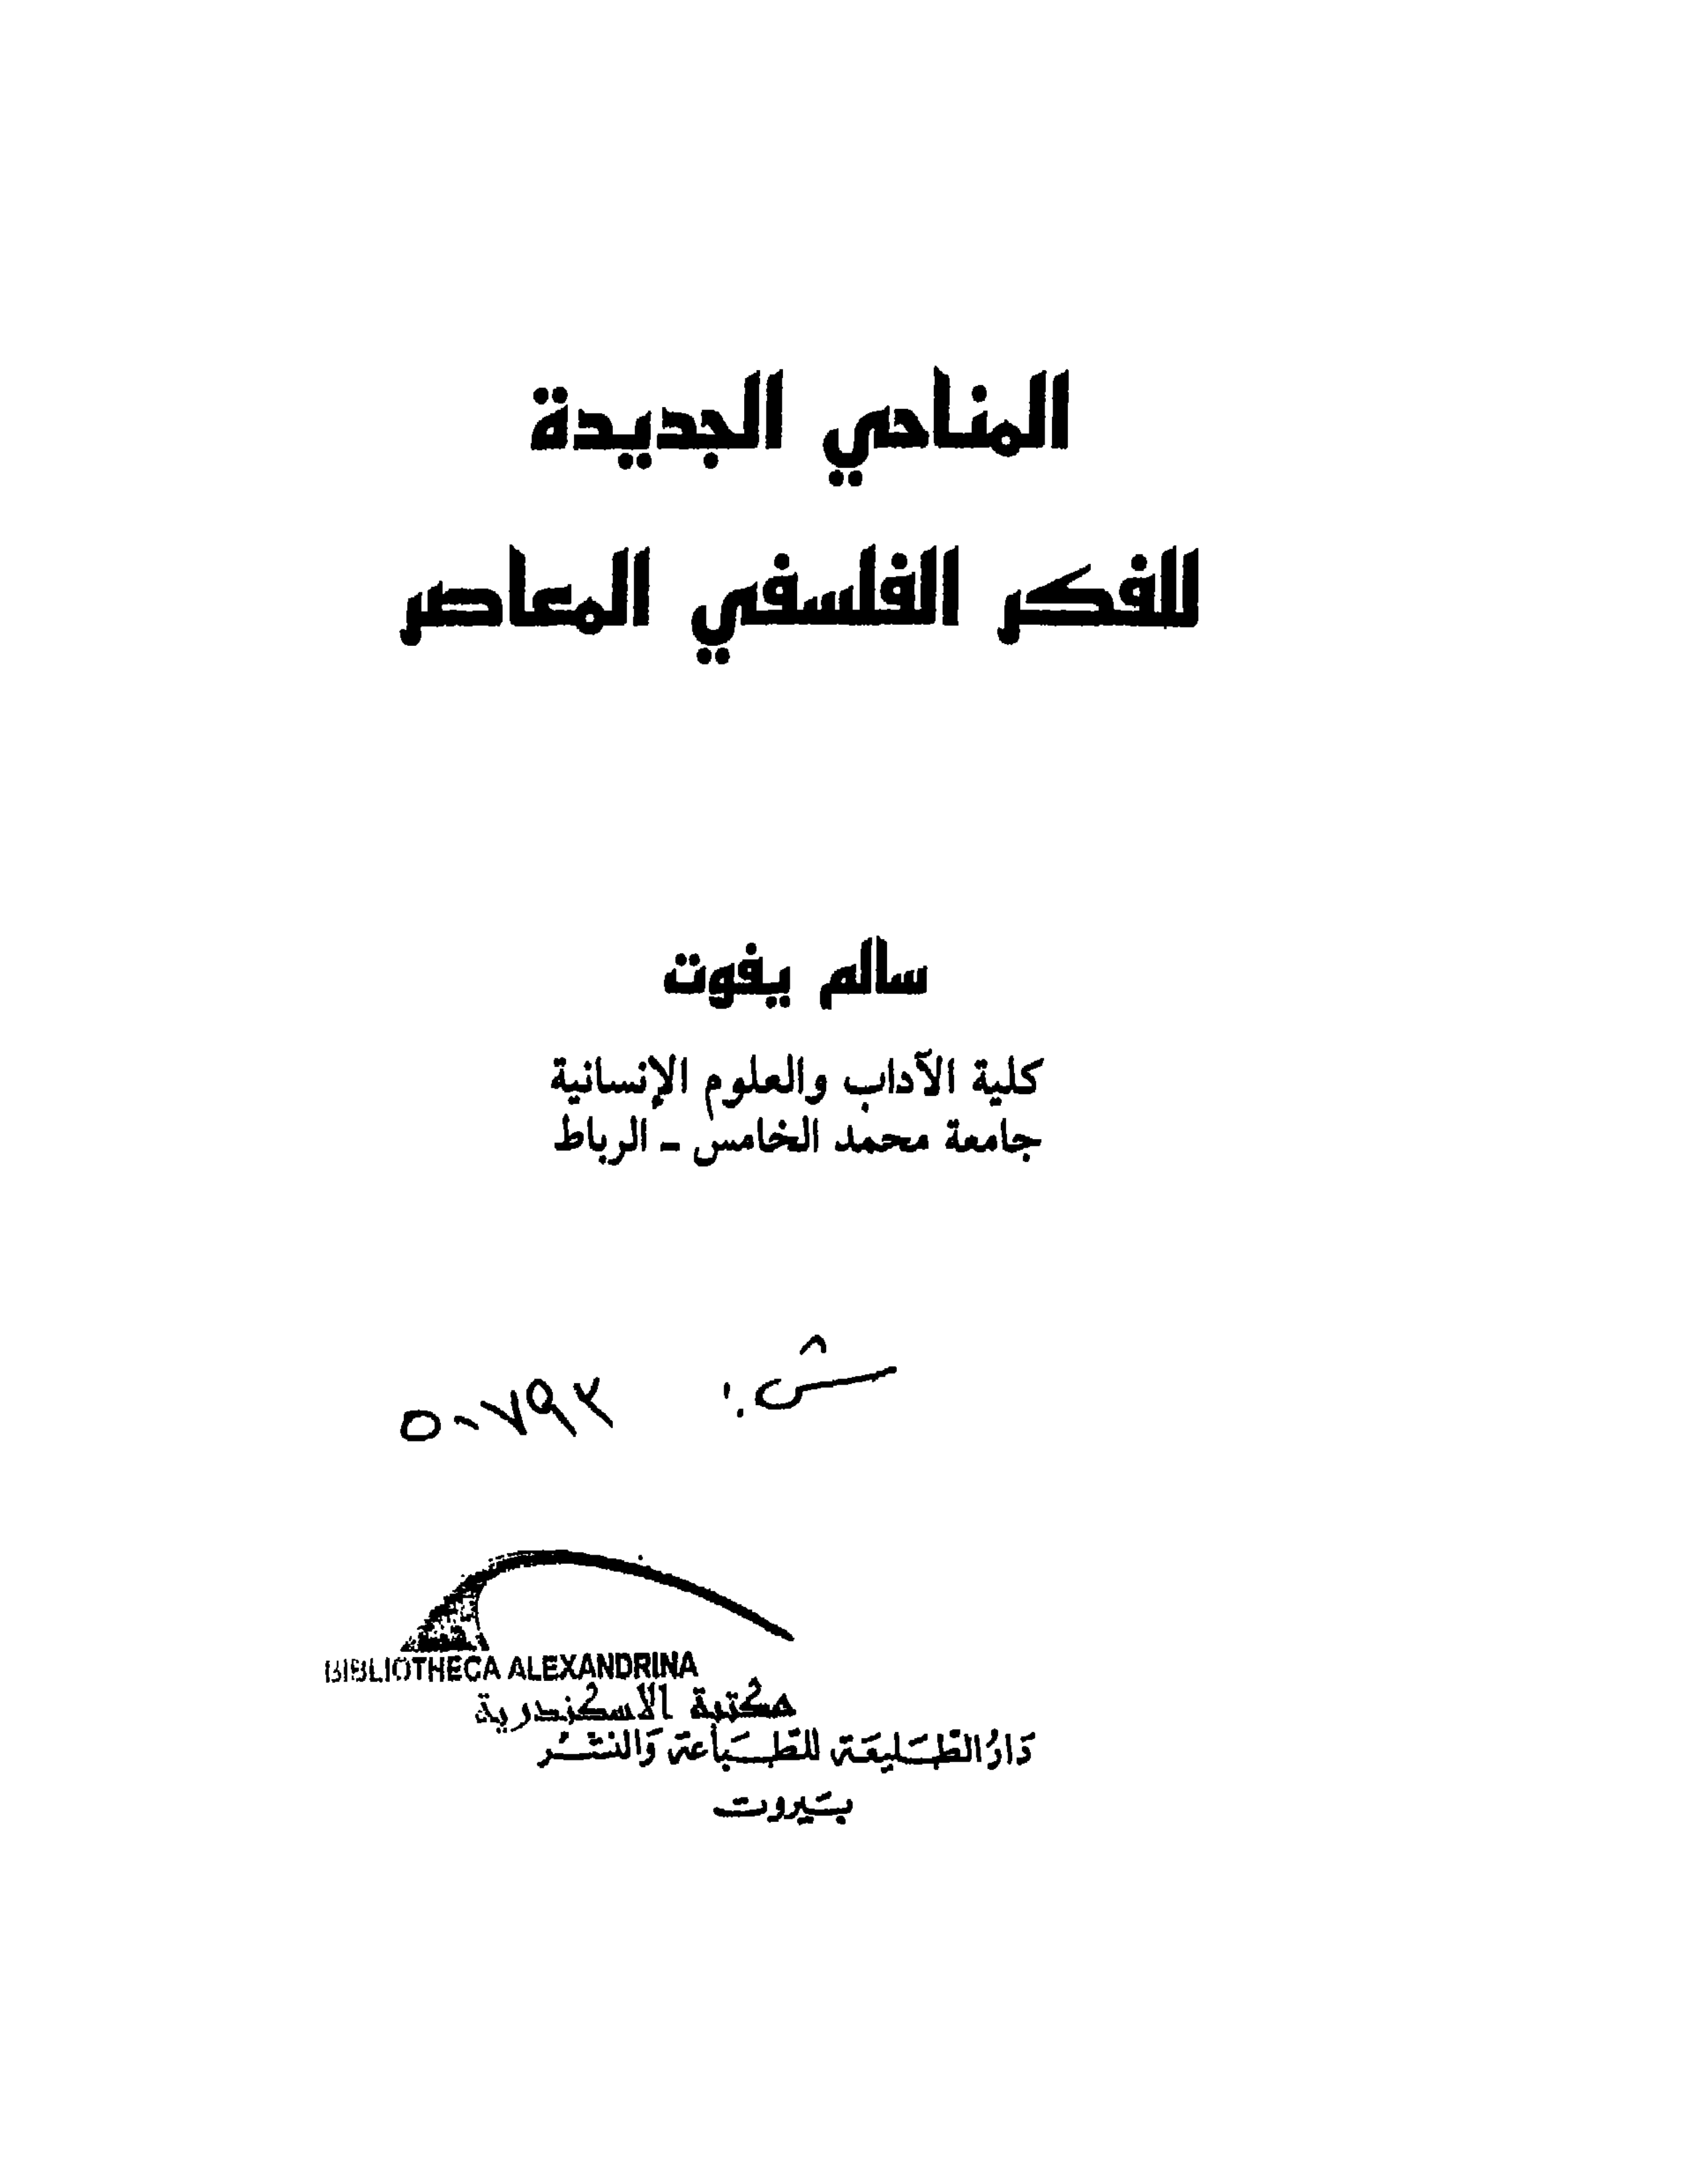 المناحي الجديدة
للفكر الفلسفي المعاصر
سالم يفوت
كلية الآداب والعلوم الإنسانية
جامعة محمد الخامس - الرباط
ش:
BIBLIOTHECA ALEXANDRINA
مكتبة الاسكندرية
دَارُ الطَّـليعَـة للطِّـبَاعَة وَالنشْـر
بَيروت